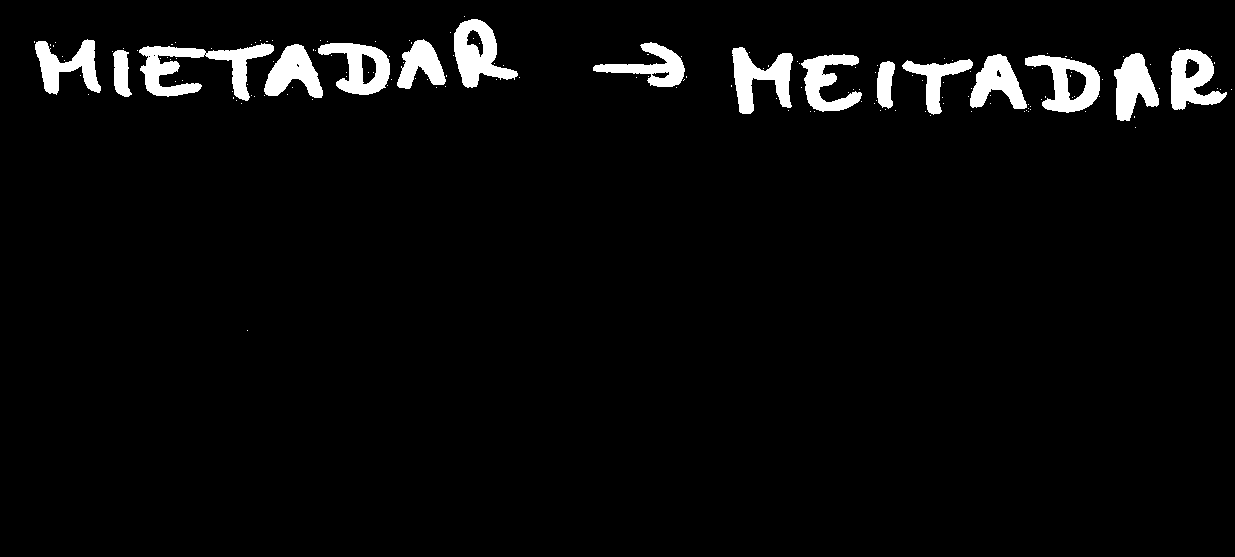 MIETADAR → MEITADAR